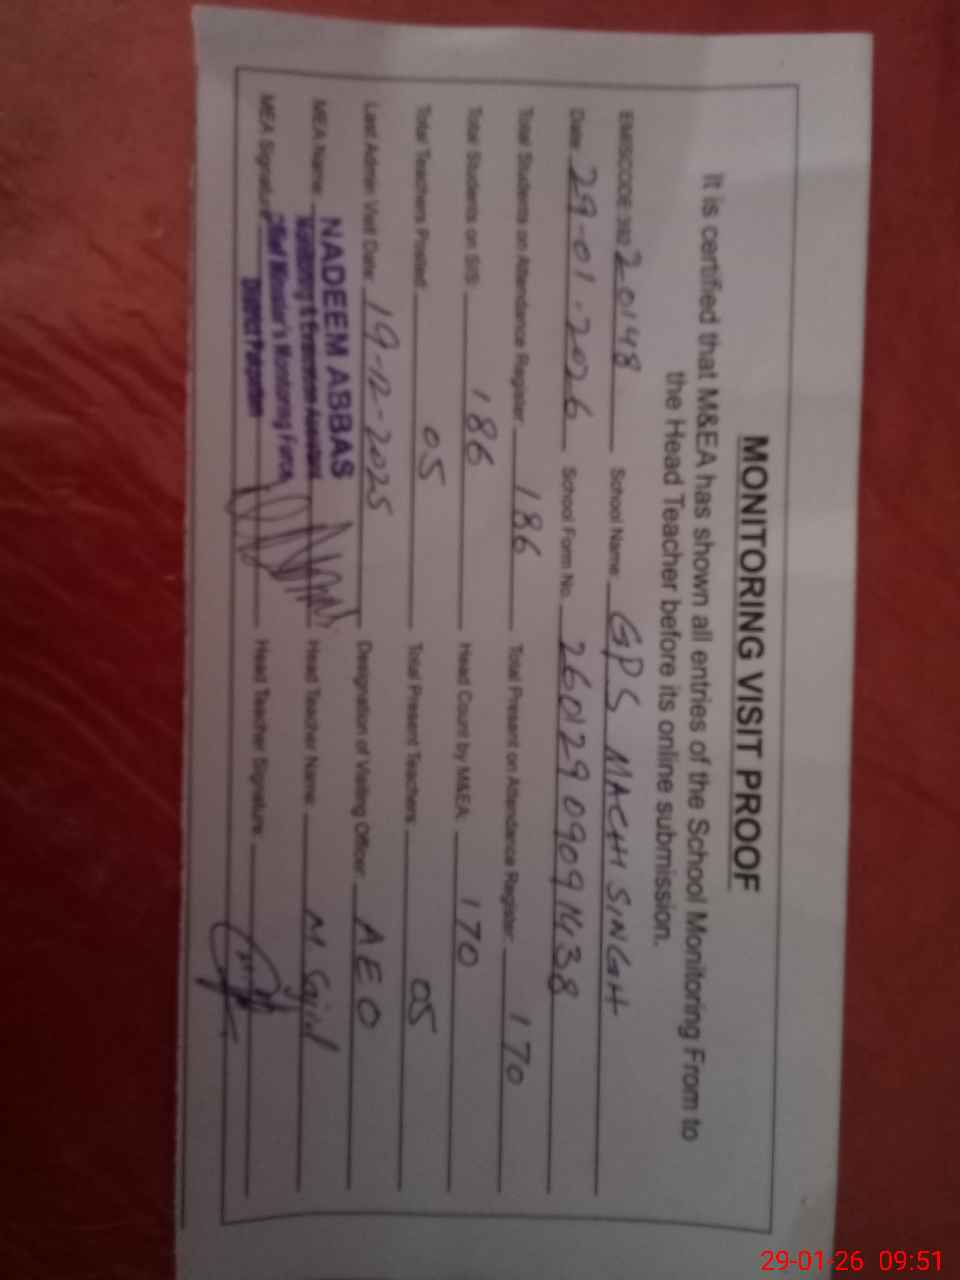 MONITORING VISIT PROOF
It is certified that M&EA has shown all entries of the School Monitoring From to
the Head Teacher before its online submission.
EMISCODE 392 20148 School Name: GPS MACHI SINGH
Date: 29-01-2026 School Form No. 26012909091438
Total Students on Attendance Register: 186 Total Present on Attendance Register: 170
Total Students on SIS: 186 Head Count by M&EA: 170
Total Teachers Posted: 05 Total Present Teachers: 05
Last Admin Visit Date: 19-12-2025 Designation of Visiting Officer: AEO
MEA Name: NADEEM ABBAS Head Teacher Name: M Sajid
Monitoring & Evaluation Assistant
MEA Signature Chief Minister's Monitoring Force Head Teacher Signature:
District Pakpattan
29-01-26 09:51